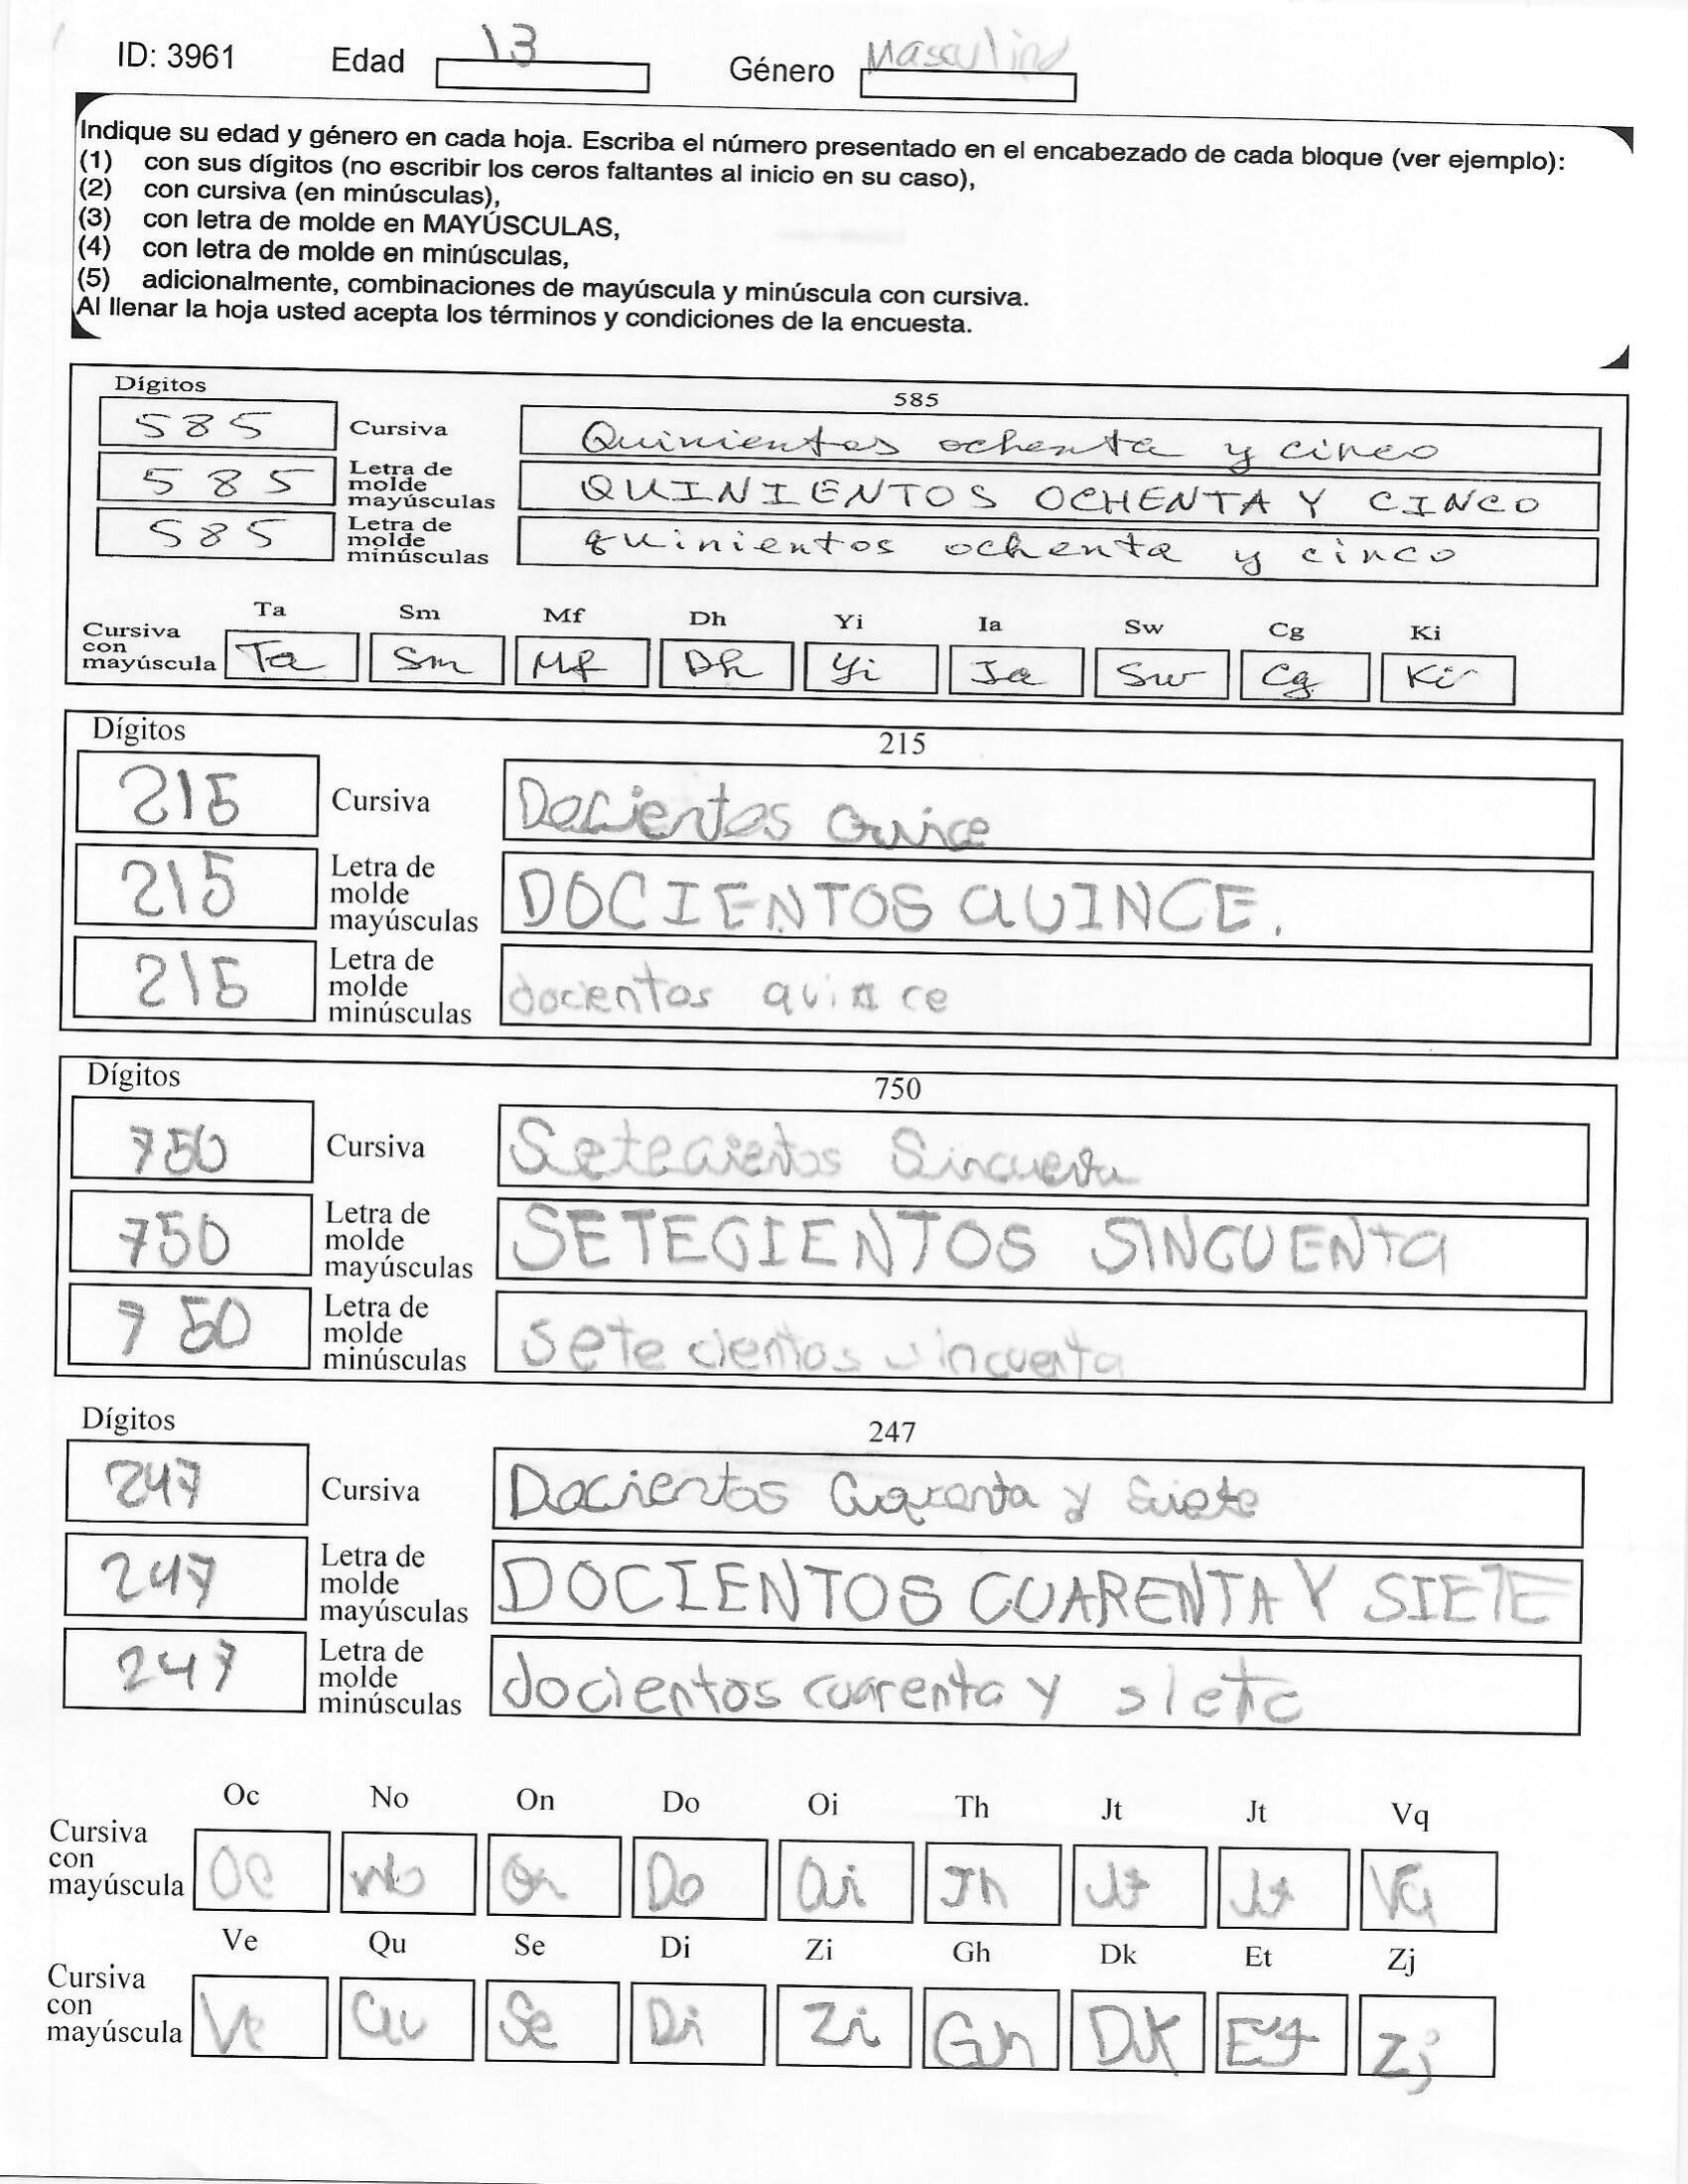 ID: 3961 Edad 13 Género Masculino
Indique su edad y género en cada hoja. Escriba el número presentado en el encabezado de cada bloque (ver ejemplo):
(1) con sus dígitos (no escribir los ceros faltantes al inicio en su caso),
(2) con cursiva (en minúsculas),
(3) con letra de molde en MAYÚSCULAS,
(4) con letra de molde en minúsculas,
(5) adicionalmente, combinaciones de mayúscula y minúscula con cursiva.
Al llenar la hoja usted acepta los términos y condiciones de la encuesta.
Dígitos 585
585 Cursiva Quinientos ochenta y cinco
585 Letra de molde mayúsculas QUINIENTOS OCHENTA Y CINCO
585 Letra de molde minúsculas quinientos ochenta y cinco
Ta Sm Mf Dh Yi Ia Sw Cg Ki
Cursiva con mayúscula Ta Sm Mf Dh Yi Ia Sw Cg Ki
Dígitos 215
215 Cursiva Docientos Quince
215 Letra de molde mayúsculas DOCIENTOS QUINCE.
215 Letra de molde minúsculas docientos quince
Dígitos 750
750 Cursiva Setecientos Sincuenta
750 Letra de molde mayúsculas SETECIENTOS SINCUENTA
750 Letra de molde minúsculas setecientos sincuenta
Dígitos 247
247 Cursiva Docientos Cuarenta y Siete
247 Letra de molde mayúsculas DOCIENTOS CUARENTA Y SIETE
247 Letra de molde minúsculas docientos cuarenta y siete
Oc No On Do Oi Th Jt Jt Vq
Cursiva con mayúscula Oc No On Do Oi Th Jt Jt Vq
Ve Qu Se Di Zi Gh Dk Et Zj
Cursiva con mayúscula Ve Qu Se Di Zi Gh Dk Et Zj